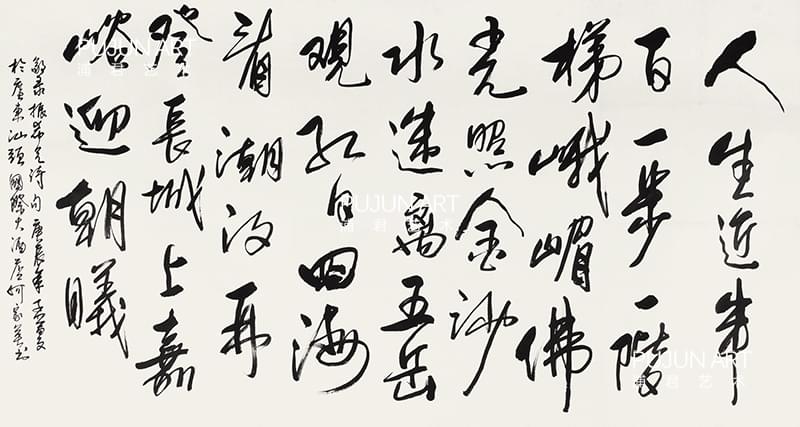 人生近半
百一步一階
梯峨嵋佛
光照金沙
水迷离五岳
观红日四海
看潮汐再
登長城上嘉
峪迎朝曦
诗句庚辰年
於廣東汕頭國際大酒店何家英书
PUJUN ART
浦君艺术
PUJUN ART
浦君艺术
PUJUN ART
浦君艺术